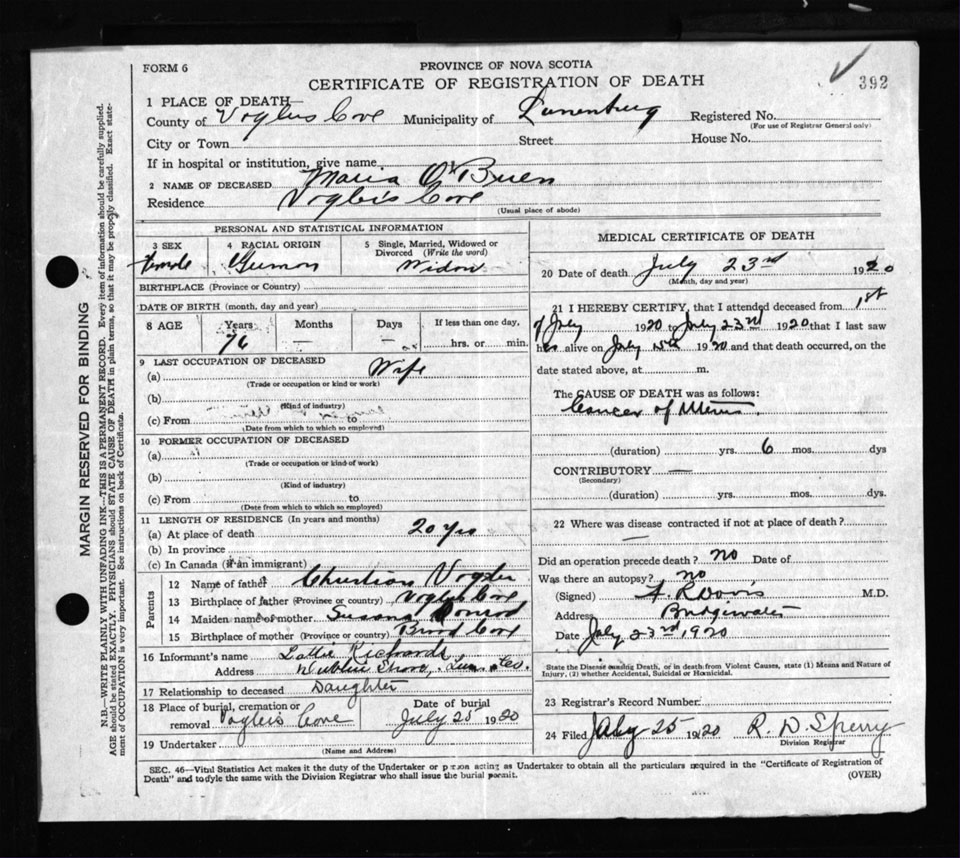 FORM 6
PROVINCE OF NOVA SCOTIA
CERTIFICATE OF REGISTRATION OF DEATH
392
1 PLACE OF DEATH—
County of Voglers Cove Municipality of Lunenburg Registered No.
(For use of Registrar General only)
City or Town Street House No.
If in hospital or institution, give name
2 NAME OF DECEASED Maria O'Brien
Residence Vogler's Cove
(Usual place of abode)
PERSONAL AND STATISTICAL INFORMATION
3 SEX 4 RACIAL ORIGIN 5 Single, Married, Widowed or Divorced (Write the word)
Female German Widow
BIRTHPLACE (Province or Country)
DATE OF BIRTH (month, day and year)
8 AGE Years Months Days If less than one day,
76 — — hrs. or min.
9 LAST OCCUPATION OF DECEASED
(a) Wife
(Trade or occupation or kind or work)
(b)
(Kind of industry)
(c) From to
(Date from which to which so employed)
10 FORMER OCCUPATION OF DECEASED
(a)
(Trade or occupation or kind of work)
(b)
(Kind of industry)
(c) From to
(Date from which to which so employed)
11 LENGTH OF RESIDENCE (In years and months)
(a) At place of death 20 yrs
(b) In province
(c) In Canada (if an immigrant)
Parents
12 Name of father Christian Vogler
13 Birthplace of father (Province or country) Voglers Cove
14 Maiden name of mother Susana Conrod
15 Birthplace of mother (Province or country) Broad Cove
16 Informant's name Lottie Richards
Address Dublin Shore, Lun. Co.
17 Relationship to deceased Daughter
18 Place of burial, cremation or removal Voglers Cove Date of burial July 25 1920
19 Undertaker
(Name and Address)
MEDICAL CERTIFICATE OF DEATH
20 Date of death July 23rd 1920
(Month, day and year)
21 I HEREBY CERTIFY, that I attended deceased from 1st
of July 1920 to July 23rd 1920 that I last saw
her alive on July 15th 1920 and that death occurred, on the
date stated above, at m.
The CAUSE OF DEATH was as follows:
Cancer of Uterus.
(duration) yrs. 6 mos. dys
CONTRIBUTORY —
(Secondary)
(duration) yrs. mos. dys.
22 Where was disease contracted if not at place of death?
—
Did an operation precede death? no Date of
Was there an autopsy? no
(Signed) F. R Davis M.D.
Address Bridgewater
Date July 23rd, 1920
State the Disease causing Death, or in death from Violent Causes, state (1) Means and Nature of
Injury, (2) whether Accidental, Suicidal or Homicidal.
23 Registrar's Record Number
24 Filed July 25 1920 R. D. Sperry
Division Registrar
SEC. 46—Vital Statistics Act makes it the duty of the Undertaker or person acting as Undertaker to obtain all the particulars required in the "Certificate of Registration of
Death" and to file the same with the Division Registrar who shall issue the burial permit.
(OVER)
MARGIN RESERVED FOR BINDING
N.B.—WRITE PLAINLY WITH UNFADING INK—THIS IS A PERMANENT RECORD. Every item of information should be carefully supplied.
AGE should be stated EXACTLY. PHYSICIANS should STATE CAUSE OF DEATH in plain terms, so that it may be properly classified. Exact state-
ment of OCCUPATION is very important. See instructions on back of Certificate.